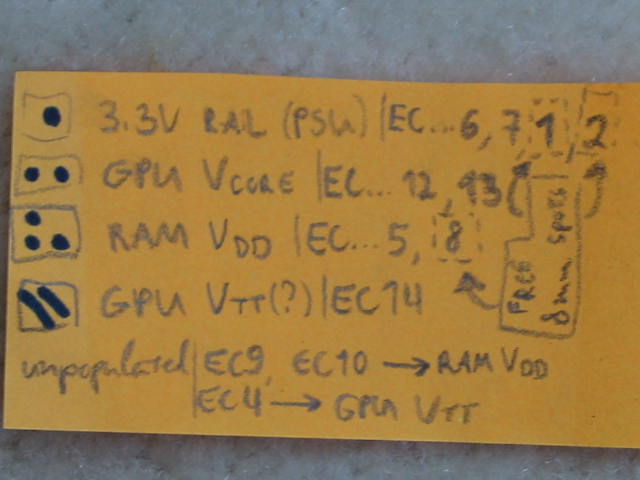 3.3V RAIL (PSU) | EC... 6, 7, 1, 2
GPU VCORE | EC... 12, 13
RAM VDD | EC... 5, 8
GPU VTT(?) | EC14
FREE
8mm spots
unpopulated | EC9, EC10 → RAM VDD
EC4 → GPU VTT